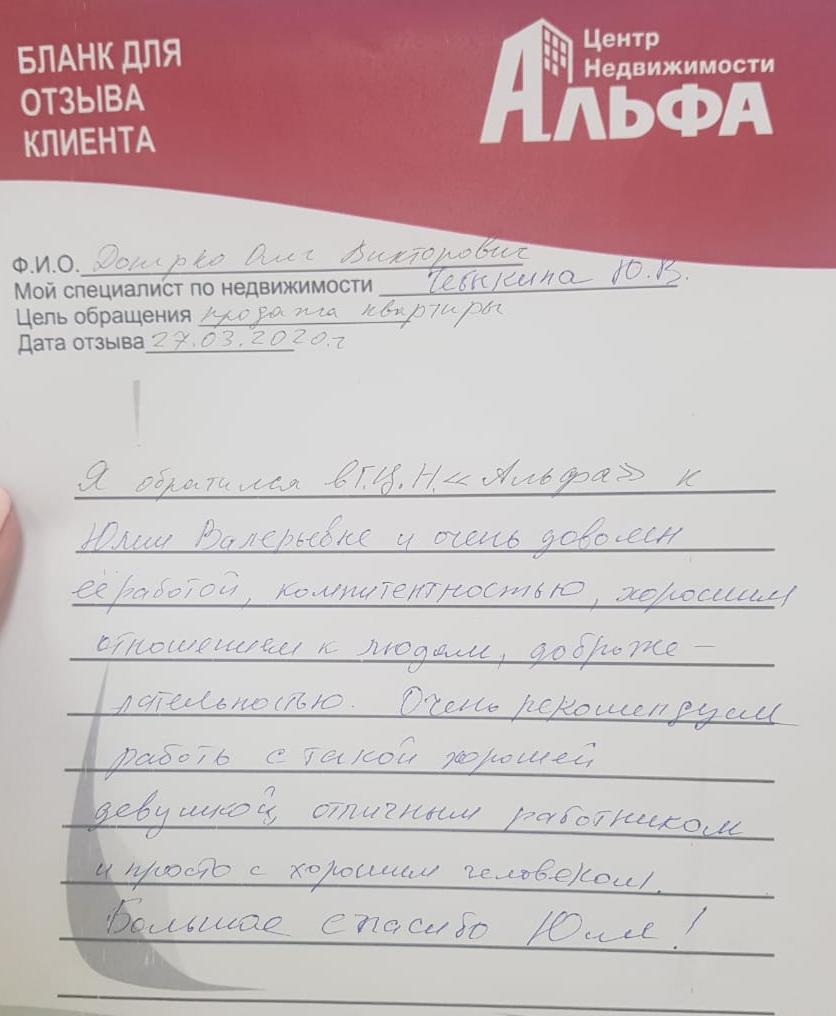 БЛАНК ДЛЯ
ОТЗЫВА
КЛИЕНТА
Центр
Недвижимости
АЛЬФА
Ф.И.О. Олег Викторович
Мой специалист по недвижимости Чебыкина Ю.В.
Цель обращения продажа квартиры
Дата отзыва 27.03.2020г
Я обратился в Г.Ц.Н. «Альфа» к
Юлии Валерьевне и очень доволен
её работой, компитентностью, хорошим
отношением к людям, доброже-
лательностью. Очень рекомендуем
работь с такой хорошей
девушкой, отличным работником
и просто с хорошим человеком.
Большое спасибо Юле!